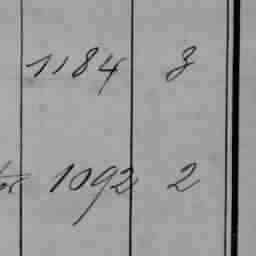 1184 3
1092 2